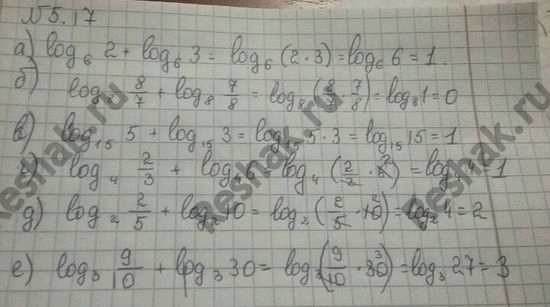 №5.17
а) log₆ 2 + log₆ 3 = log₆ (2·3) = log₆ 6 = 1.
б) log₈ 8/7 + log₈ 7/8 = log₈ (8/7 · 7/8) = log₈ 1 = 0
в) log₁₅ 5 + log₁₅ 3 = log₁₅ 5·3 = log₁₅ 15 = 1
г) log₄ 2/3 + log₄ 6 = log₄ (2/3 · 6²) = log₄ 4 = 1
д) log₂ 2/5 + log₂ 10 = log₂ (2/5 · 10²) = log₂ 4 = 2
е) log₃ 9/10 + log₃ 30 = log₃ (9/10 · 30³) = log₃ 27 = 3
Reshak.ru
Reshak.ru
Reshak.ru